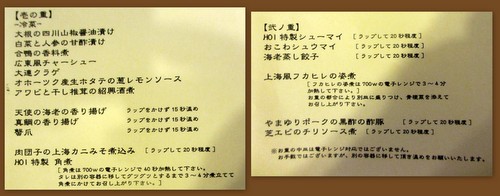 【壱の重】
~冷菜~
大根の四川山椒醤油漬け
白菜と人参の甘酢漬け
合鴨の香料煮
広東風チャーシュー
大連クラゲ
オホーツク産生ホタテの葱レモンソース
アワビと干し椎茸の紹興酒煮
天使の海老の香り揚げ ラップをかけず15秒温め
真鯛の香り揚げ ラップをかけず15秒温め
蟹爪 ラップをかけず15秒温め
肉団子の上海カニみそ煮込み [ラップして20秒程度]
HOI特製 角煮
[角煮は700wの電子レンジで40秒加熱して下さい。
タレは別の容器に移してグツグツとするまで3~4分煮立てて
角煮にかけてお召し上がり下さい。]
【弐ノ重】
HOI特製シューマイ [ラップして20秒程度]
おこわシュウマイ [ラップして20秒程度]
海老蒸し餃子 [ラップして20秒程度]
上海風フカヒレの姿煮
[フカヒレの姿煮は700wの電子レンジで3~4分
加熱して下さい。]
お重の都合により別皿に盛りつけ、香糟菜を添えて
お召し上がり下さい。
やまゆりポークの黒酢の酢豚 [ラップして20秒程度]
芝エビのチリソース煮 [ラップして20秒程度]
※お重の中皿は電子レンジ対応ではございません。
お手数ではございますが、別の容器に移して頂き温めをお願いいたします。